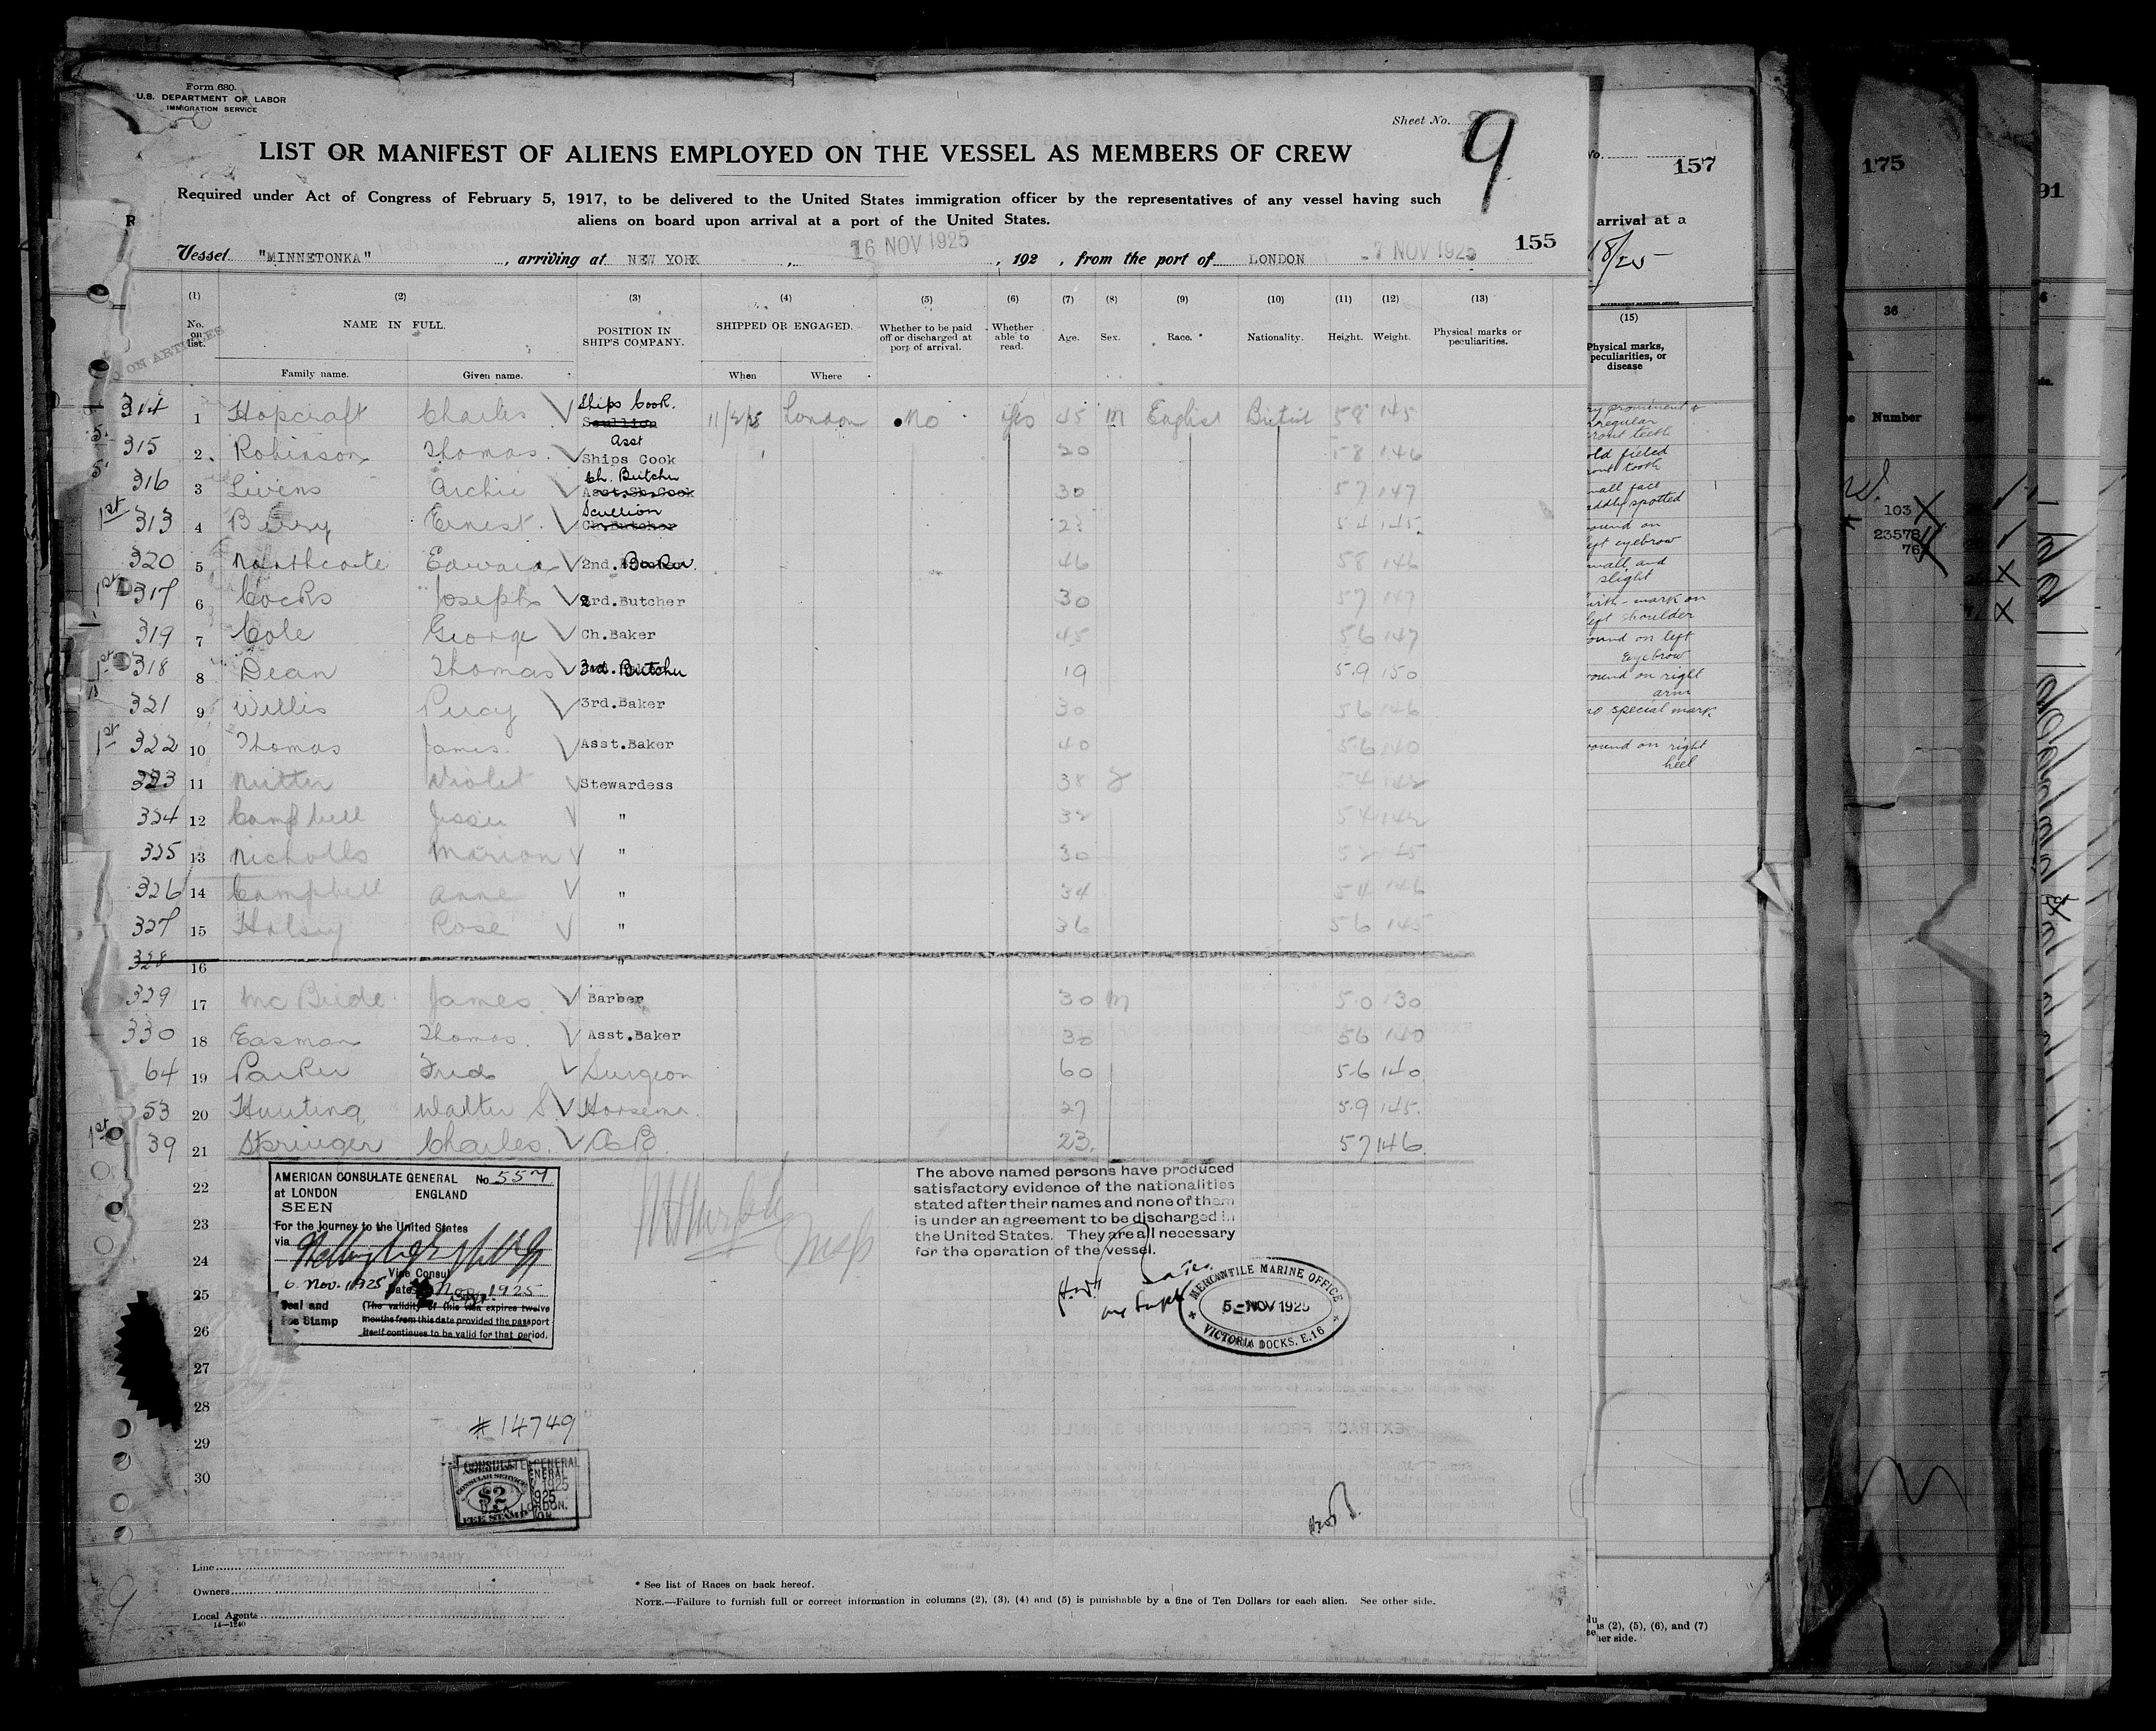 Form 680.
U.S. DEPARTMENT OF LABOR
IMMIGRATION SERVICE
Sheet No. 9
LIST OR MANIFEST OF ALIENS EMPLOYED ON THE VESSEL AS MEMBERS OF CREW
Required under Act of Congress of February 5, 1917, to be delivered to the United States immigration officer by the representatives of any vessel having such
aliens on board upon arrival at a port of the United States.
155
Vessel "MINNETONKA", arriving at NEW YORK, 16 NOV 1925, 192 , from the port of LONDON - 7 NOV 1925
(1) (2) (3) (4) (5) (6) (7) (8) (9) (10) (11) (12) (13)
No. on list. NAME IN FULL. POSITION IN SHIP'S COMPANY. SHIPPED OR ENGAGED. Whether to be paid off or discharged at port of arrival. Whether able to read. Age. Sex. Race.* Nationality. Height. Weight. Physical marks or peculiarities.
Family name. Given name. When Where
314 1 Hopcraft Charles V Ships Cook. Scullion 11/2/25 London No Yes 45 M English British 58 145
315 2 Robinson Thomas. V Asst Ships Cook 20 58 146
316 3 Livens Archie V Ch. Butcher Asst.Sh.Cook 30 57 147
1st 313 4 Berry Ernest. V Scullion Ch.Butcher 54 145
320 5 Northcote Edward V 2nd. Baker. 46 58 146
1st 317 6 Cocks Joseph V 2rd.Butcher 30 57 147
319 7 Cole George V Ch.Baker 45 56 147
1st 318 8 Dean Thomas V 3rd. Butcher 19 5.9 150
321 9 Willis Percy V 3rd.Baker 30 56 146
1st 322 10 Thomas James. V Asst.Baker 40 5.6 140
323 11 Nutter Violet V Stewardess 38 54 142
324 12 Campbell Jessie V " 32 54 142
325 13 Nicholls Marion V " 30 52 145
326 14 Campbell Anne V " 34 54 146
327 15 Halsey Rose V " 36 56 145
328 16 "
329 17 McBride James. V Barber 30 M 5.0 130
330 18 Easman Thomas. V Asst.Baker 30 56 140
64 19 Parker Fred V Surgeon 60 5.6 140
53 20 Hunting Walter S V Horsemn. 27 5.9 145.
1st 39 21 Springer Charles. V AB 23. 57 146
22
23
24
25
26
27
28
29
30
AMERICAN CONSULATE GENERAL No 557
at LONDON ENGLAND
SEEN
For the journey to the United States
via
Vice Consul
6. Nov. 1925 Date 1925
Seal and Fee Stamp
(The validity of this visa expires twelve
months from this date provided the passport
itself continues to be valid for that period.
The above named persons have produced
satisfactory evidence of the nationalities
stated after their names and none of them
is under an agreement to be discharged in
the United States. They are all necessary
for the operation of the vessel.
MERCANTILE MARINE OFFICE
5 - NOV 1925
VICTORIA DOCKS. E.16
# 14749
CONSULATE GENERAL
CONSULAR SERVICE
$2
FEE STAMP
1925
LONDON.
Line
Owners
Local Agents
14—1240
* See list of Races on back hereof.
NOTE.—Failure to furnish full or correct information in columns (2), (3), (4) and (5) is punishable by a fine of Ten Dollars for each alien. See other side.
9
157
arrival at a
18/25
(15)
Physical marks,
peculiarities, or
disease
front teeth
small face
badly spotted
left eyebrow
small and
slight
birth-mark on
left shoulder
wound on left
Eyebrow
wound on right
arm
no special mark
wound on right
heel
(2), (5), (6), and (7)
175
36
Number
103
23578
76
91